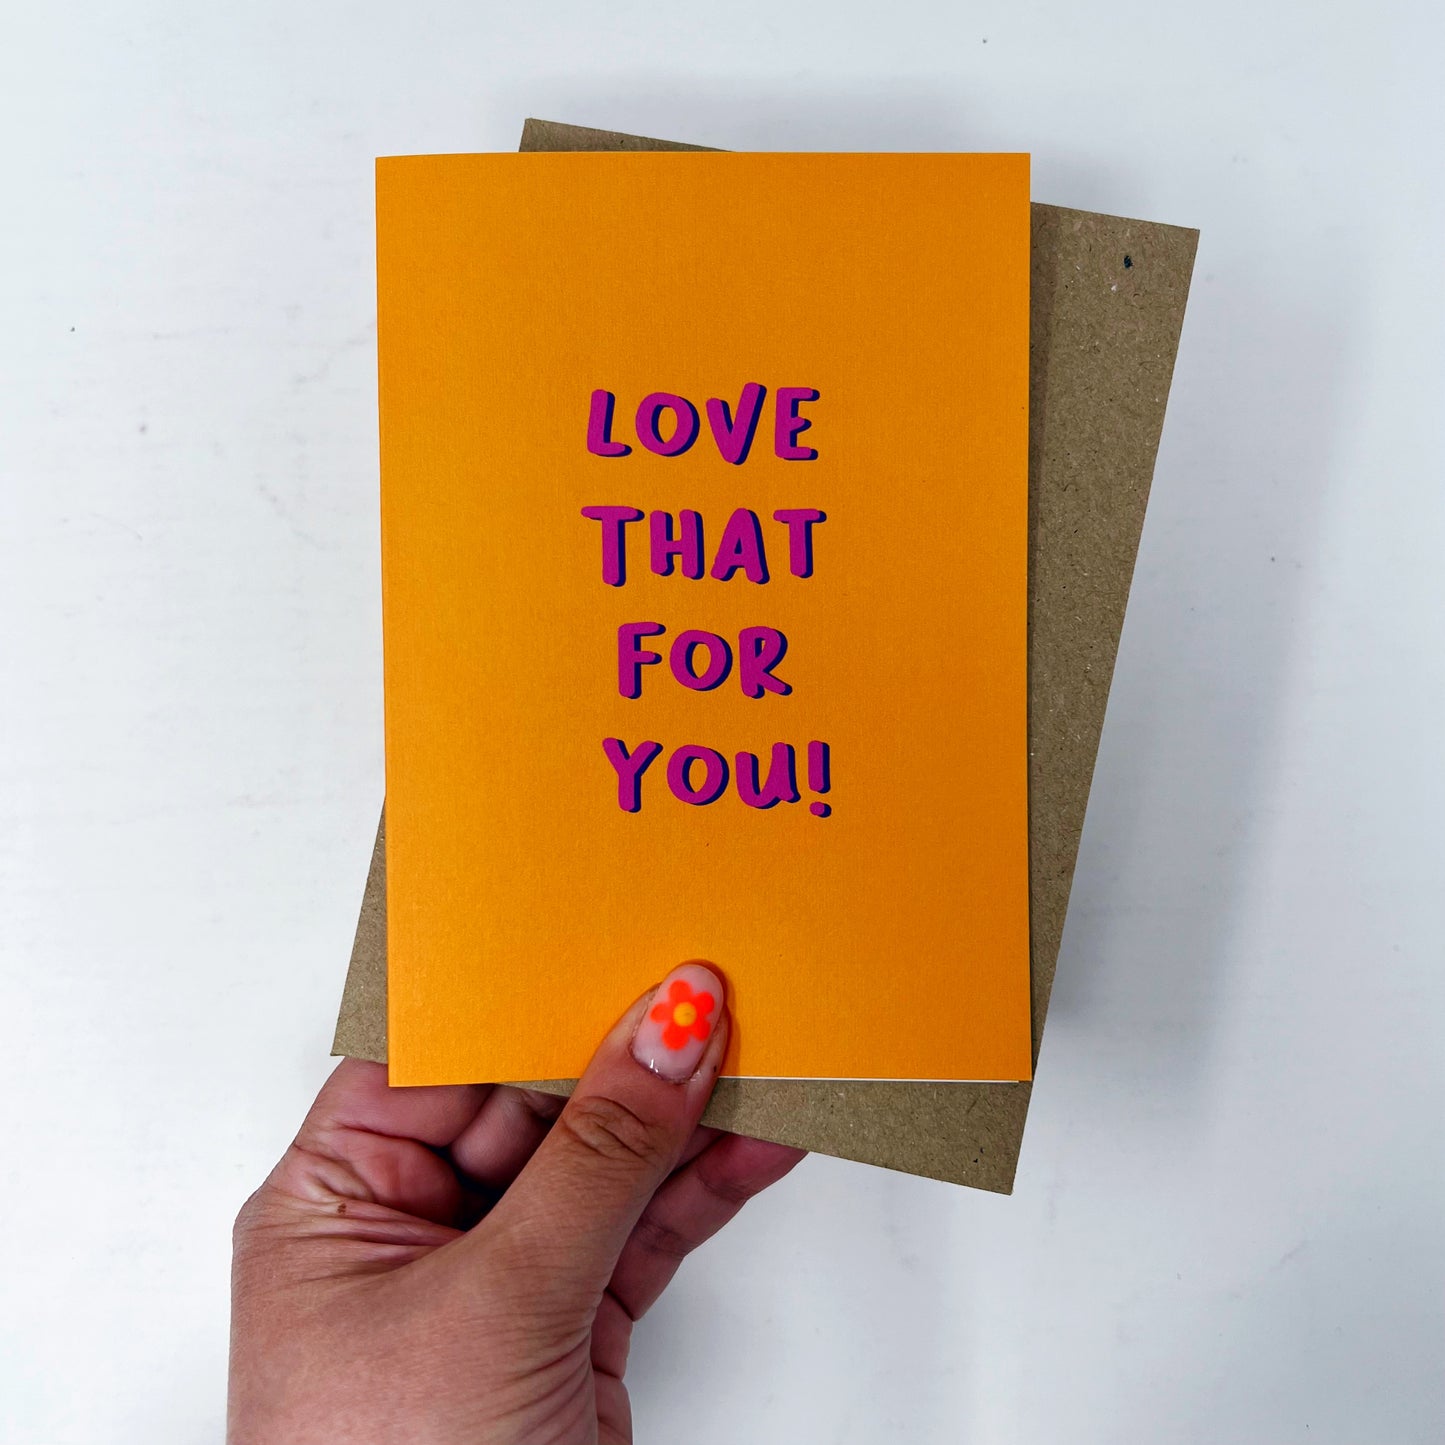 LOVE
THAT
FOR
YOU!